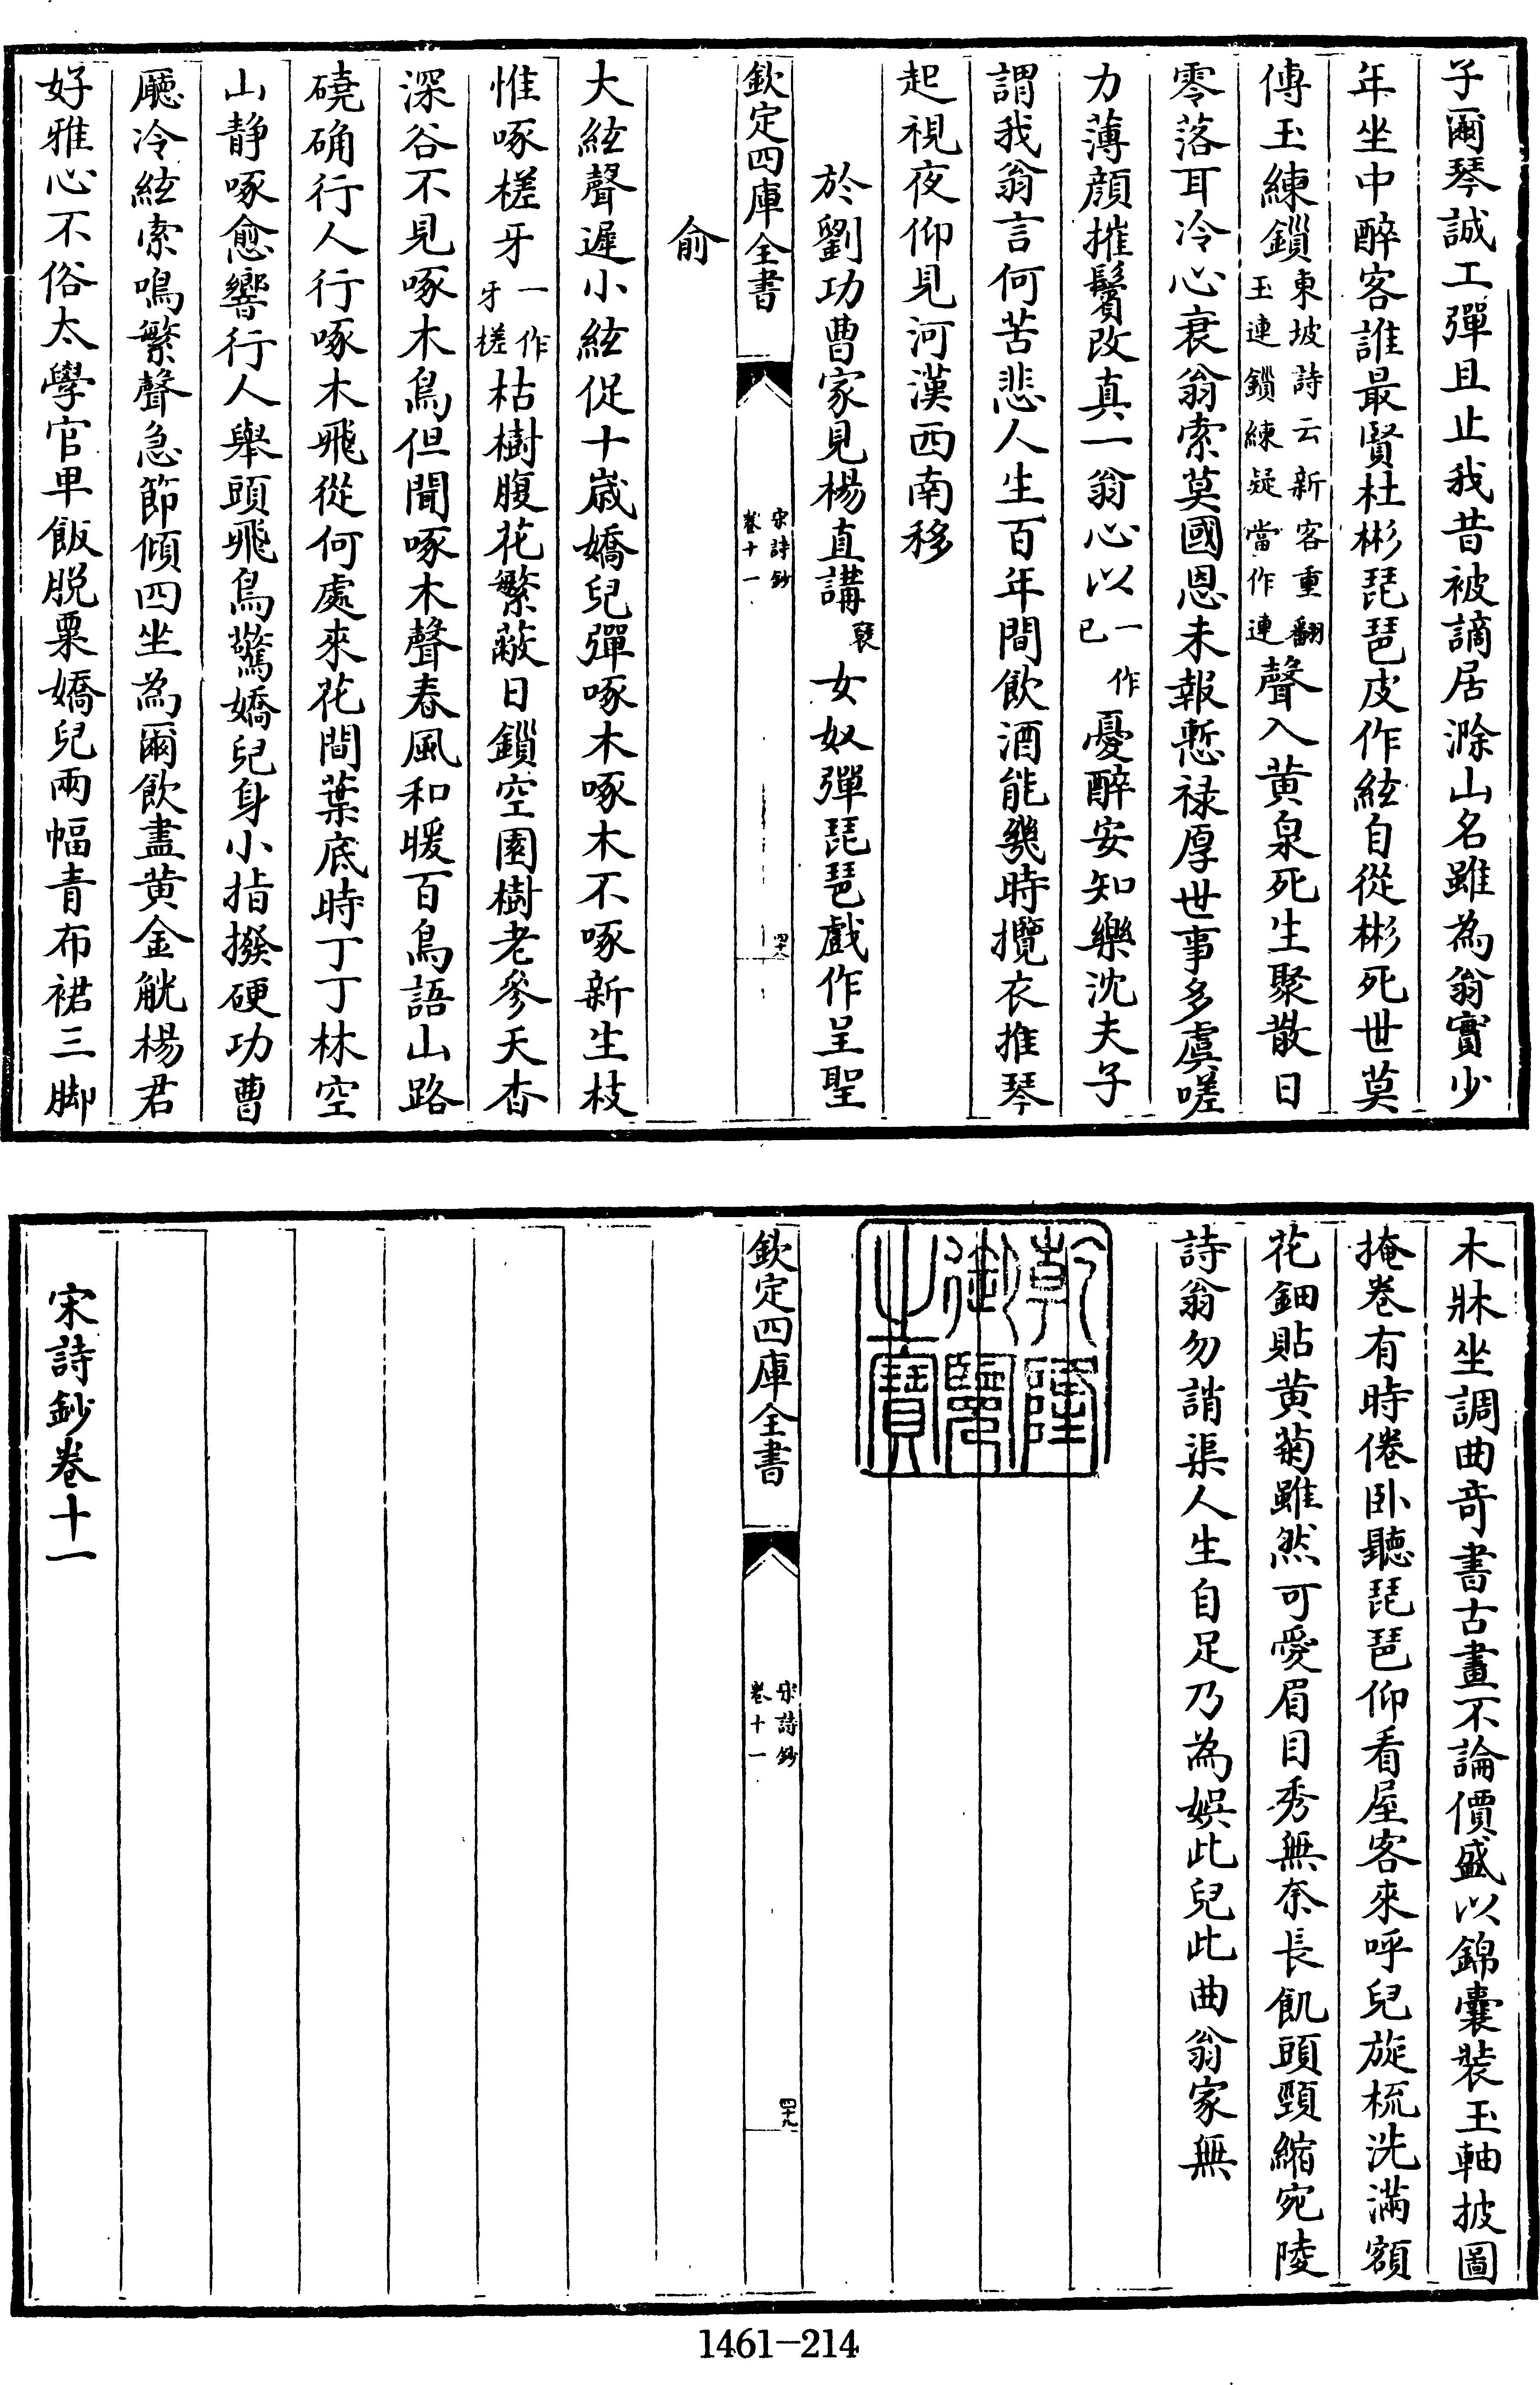 子爾琴誠工彈且止我昔被謫居滁山名雖為翁實少
年坐中醉客誰最賢杜彬琵琶皮作絃自從彬死世莫
傳玉練鎖東坡詩云新客重翻玉連鎖練疑當作連聲入黄泉死生聚散日
零落耳冷心衰翁索莫國恩未報慙禄厚世事多虞嗟
力薄顔摧鬢改真一翁心以一作已憂醉安知樂沈夫子
謂我翁言何苦悲人生百年間飲酒能幾時攬衣推琴
起視夜仰見河漢西南移
於劉功曹家見楊直講褒女奴彈琵琶戲作呈聖
欽定四庫全書
宋詩鈔
卷十一
四十八
俞
大絃聲遲小絃促十歳嬌兒彈啄木啄木不啄新生枝
惟啄槎牙一作牙槎枯樹腹花繁蔽日鎖空園樹老參天杳
深谷不見啄木鳥但聞啄木聲春風和暖百鳥語山路
磽确行人行啄木飛從何處來花間葉底時丁丁林空
山静啄愈響行人舉頭飛鳥驚嬌兒身小指撥硬功曹
廳冷絃索鳴繁聲急節傾四坐為爾飲盡黄金觥楊君
好雅心不俗太學官卑飯脱粟嬌兒兩幅青布裙三脚
木牀坐調曲竒書古畫不論價盛以錦囊裝玉軸披圖
掩卷有時倦卧聽琵琶仰看屋客來呼兒旋梳洗滿額
花鈿貼黄菊雖然可愛眉目秀無奈長飢頭頸縮宛陵
詩翁勿誚渠人生自足乃為娱此兒此曲翁家無
乾隆御覽之寶
欽定四庫全書
宋詩鈔
卷十一
四十九
宋詩鈔卷十一
1461-214